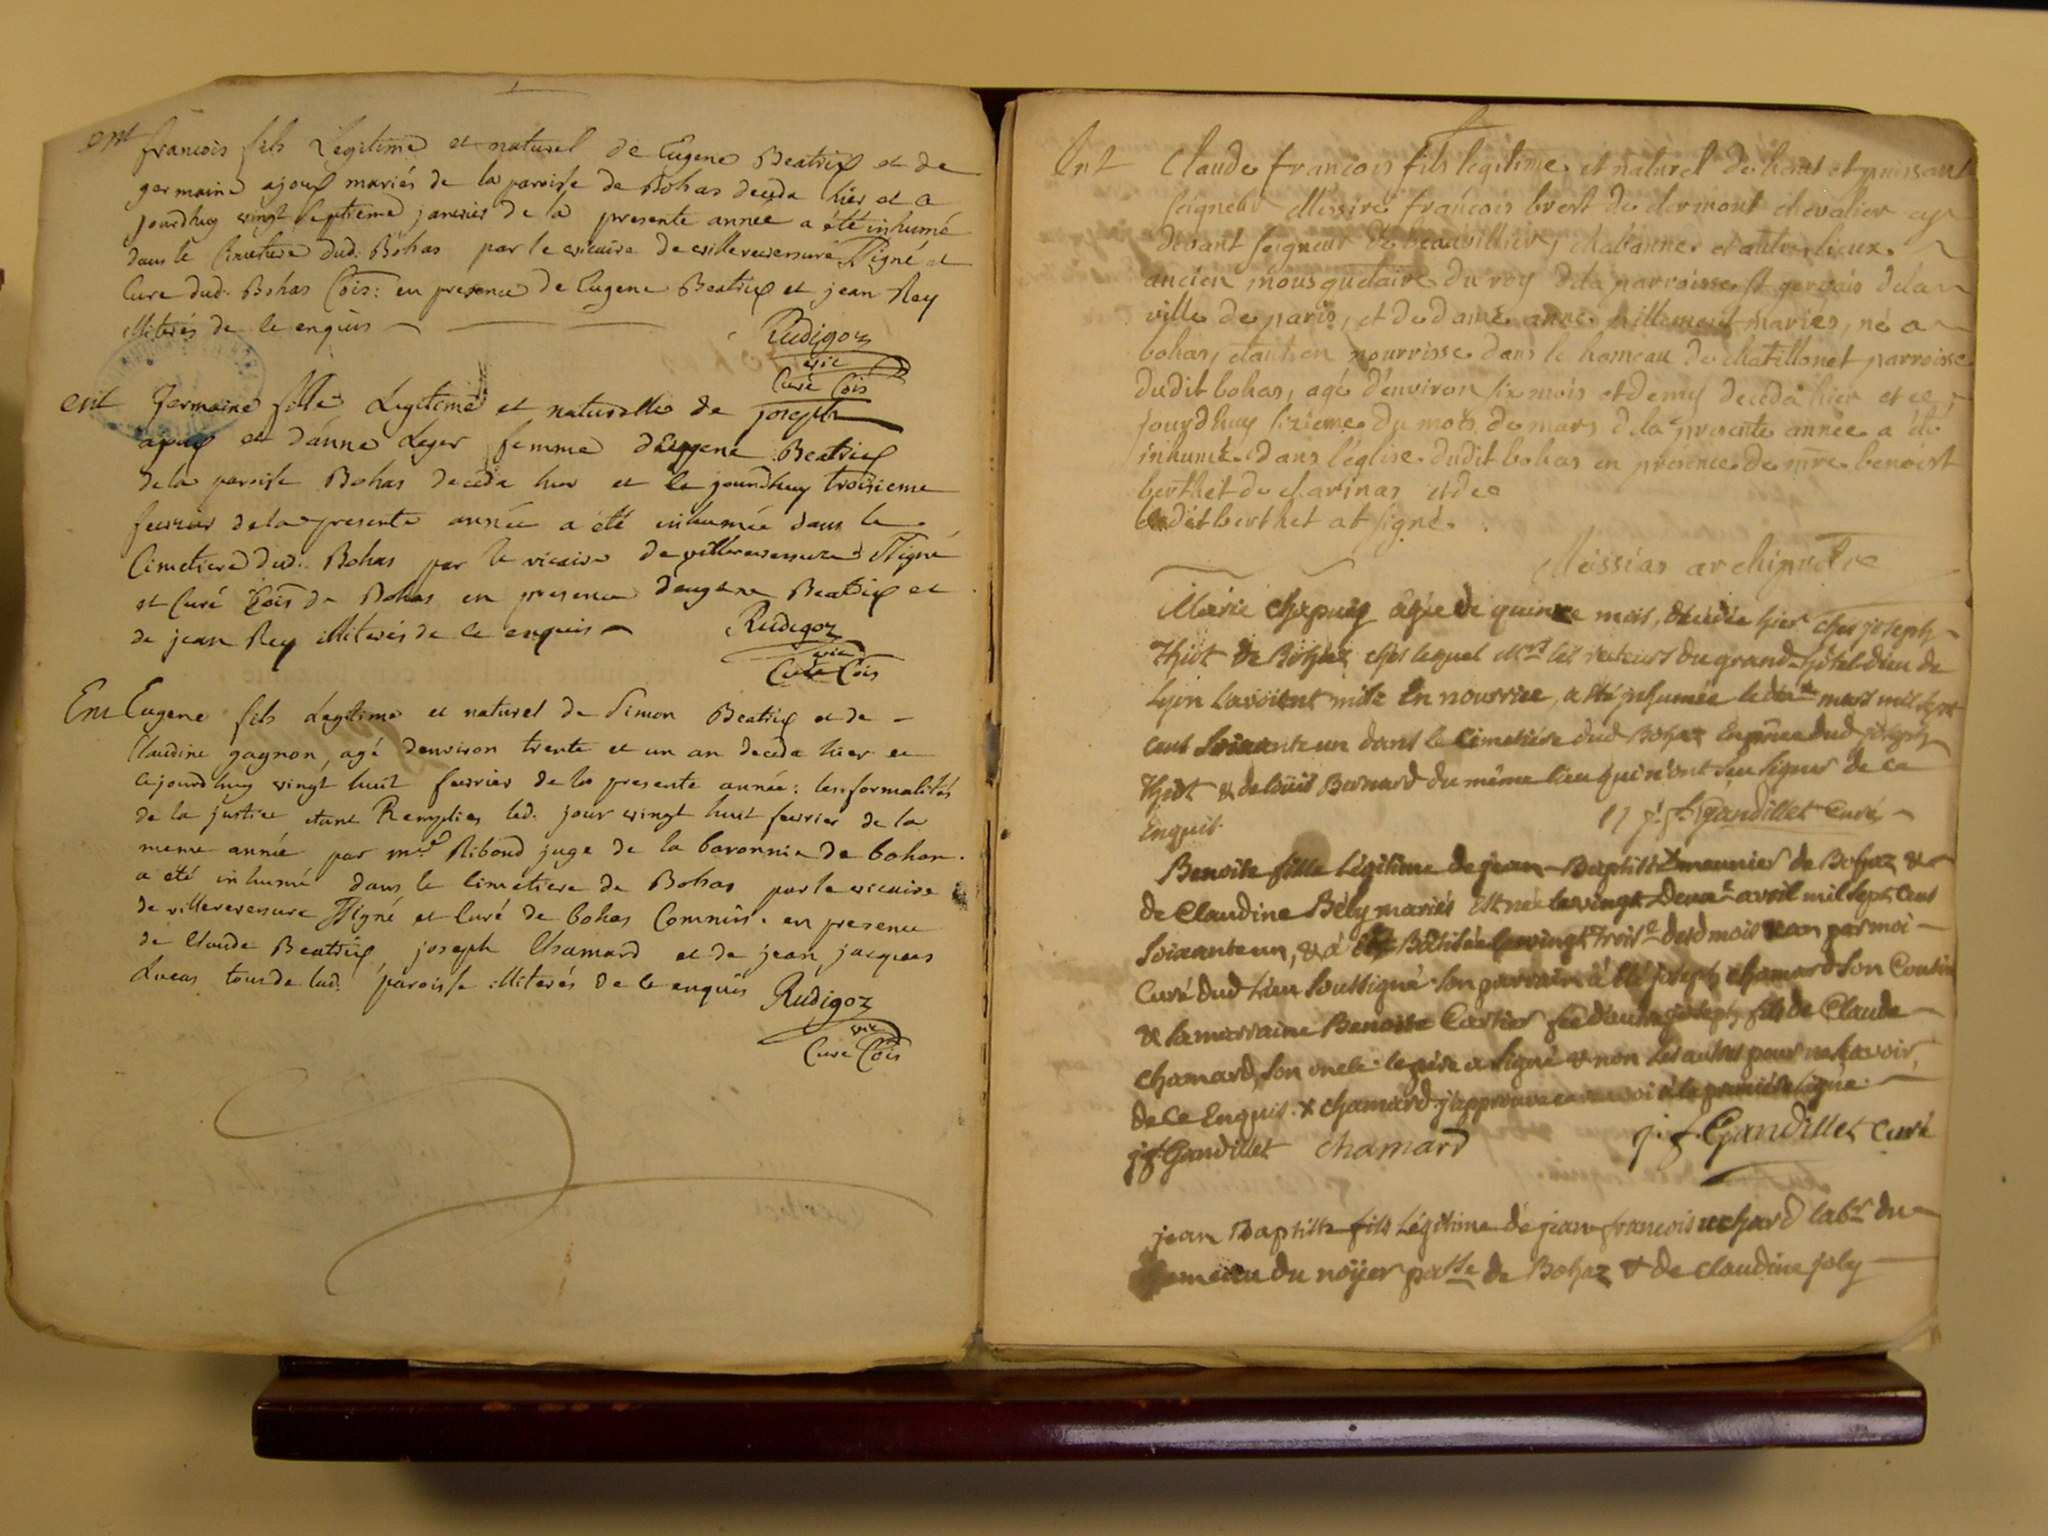 ent francois fils Légitime et naturel de Eugene Beatrix et de
germaine ajoux mariés de la paroisse de Bohas deceda hier et a
jourdhuy vingt septieme janvier de la presente année a été inhumé
dans le Cimetiere dud. Bohas par le vicaire de villereversure ssigné et
Curé dud. Bohas Cois: en presence de Eugene Beatrix et jean Rey
illiterés de ce enquis
Rudigoz
vic
Curé Cois
ent Germaine fille Légitime et naturelle de joseph
ajoux et d'anne Leger femme d'eugene Beatrix
de la paroisse Bohas deceda hier et ce jourdhuy troisieme
fevrier de la presente année a été inhumée dans le
Cimetiere dud. Bohas par le vicaire de villereversure ssigné
et Curé Cois de Bohas en presence d'eugene Beatrix et
de jean Rey illiterés de ce enquis
Rudigoz
vic
Curé Cois
Ent Eugene fils Legitime et naturel de Simon Beatrix et de
Claudine gagnon, agé denviron trente et un an deceda hier et
cejourdhuy vingt huit fevrier de la presente année: les formalités
de la justice etant Remplies led. jour vingt huit fevrier de la
meme année par mre Ribond juge de la baronnie de bohan.
a été inhumé dans le cimetiere de Bohas par le vicaire
de villereversure ssigné et Curé de bohas Commis. en presence
de Claude Beatrix joseph Chamard et de jean jacques
Lucas tous de lad. paroisse illiterés de ce enquis
Rudigoz
vic
Curé Cois
Ent Claude francois fils legitime et naturel de haut et puissant
seigneur Messire francois bert de clermont chevalier cy
devant seigneur de beauvillier, chabanne et autre lieux
ancien mousquetaire du roy de la parroisse st gervais de la
ville de paris, et de dame anne villement maries, né a
bohas, etant en nourrisse dans le hameau de chatillonet parroisse
dudit bohas, agé d'environ six mois et demy deceda hier et ce
jourdhuy sizieme du mois de mars de la presente année a été
inhumé dans l'église dudit bohas en presence de mre benoist
berthet de charinas et de
ledit berthet at signé.
Messias archiprêtre
Marie chapuis âgée de quinze mois, décédée hier ches joseph
Thiot de Bohaz ches lequel Mrs les recteurs du grand hôtel-dieu de
lyon l'avoient mise En nourrice, a été inhumée le mars mil sept
cent soixante un dans le cimetiére dud Bohaz En pñce dud joseph
Thiot & de louis Bernard du même lieu qui n'ont seu signer de ce
Enquis.
j. f. Gandillet Curé
Benoite fille légitime de jean-Baptiste x meunier de Bohaz &
de Claudine Bély mariés Est née le vingt Deuxe avril mil sept cent
soixante un, & a été Batisée le vingt troise dud mois & an par moi
Curé dud lieu soussigné son parrain a été joseph chamard son Cousin
& la marraine Benoite Cartier fée d'autre joseph fils de Claude
chamard, son oncle le pére a signé & non les autres pour ne savoir
de ce Enquis. x chamard j'approuve ce renvoi à la premiére ligne
j.f. Gandillet chamard j. f. Gandillet curé
jean Baptiste fils légitime de jean francois uchard labr du
hameau du noÿer passe de Bohaz & de claudine joly